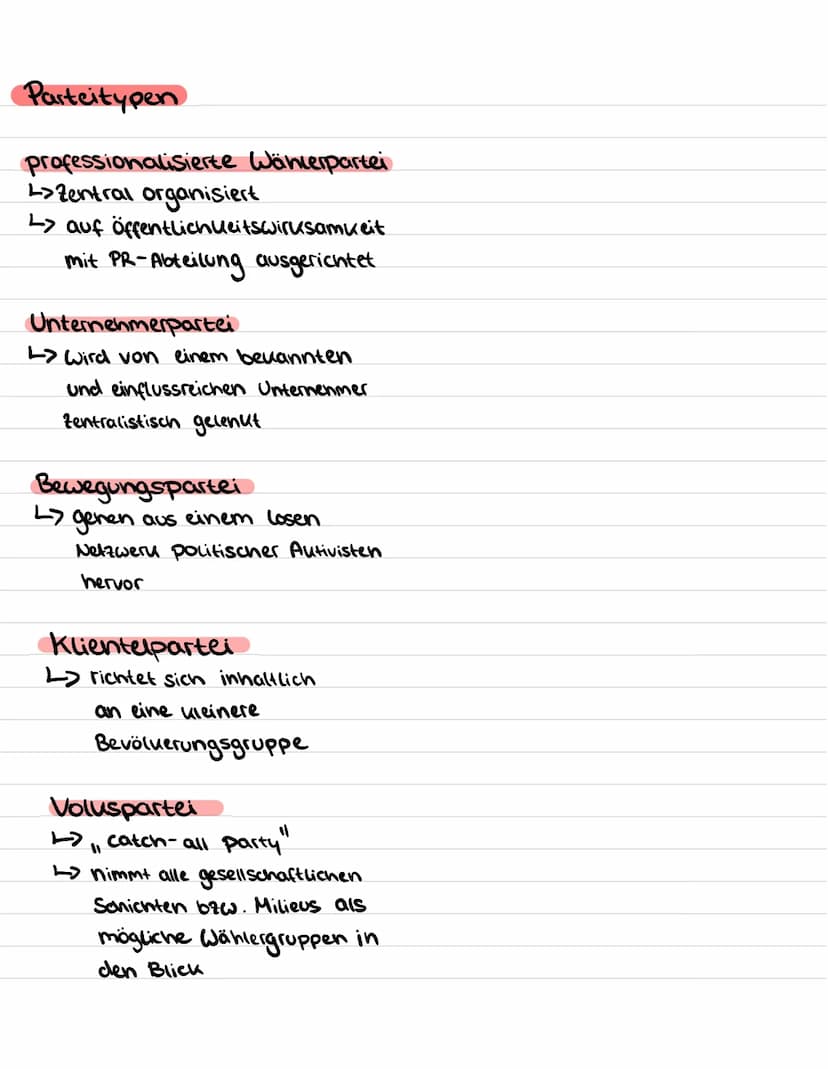 Parteitypen
professionalisierte Wählerpartei
↳ Zentral organisiert
↳ auf öffentlichkeitswirksamkeit
mit PR-Abteilung ausgerichtet
Unternehmerpartei
↳ Wird von einem bekannten
und einflussreichen Unternehmer
zentralistisch gelenkt
Bewegungspartei
↳ gehen aus einem losen
Netzwerk politischer Aktivisten
hervor
Klientelpartei
↳ richtet sich inhaltlich
an eine kleinere
Bevölkerungsgruppe
Volkspartei
↳ „catch-all party"
↳ nimmt alle gesellschaftlichen
Schichten bzw. Milieus als
mögliche Wählergruppen in
den Blick